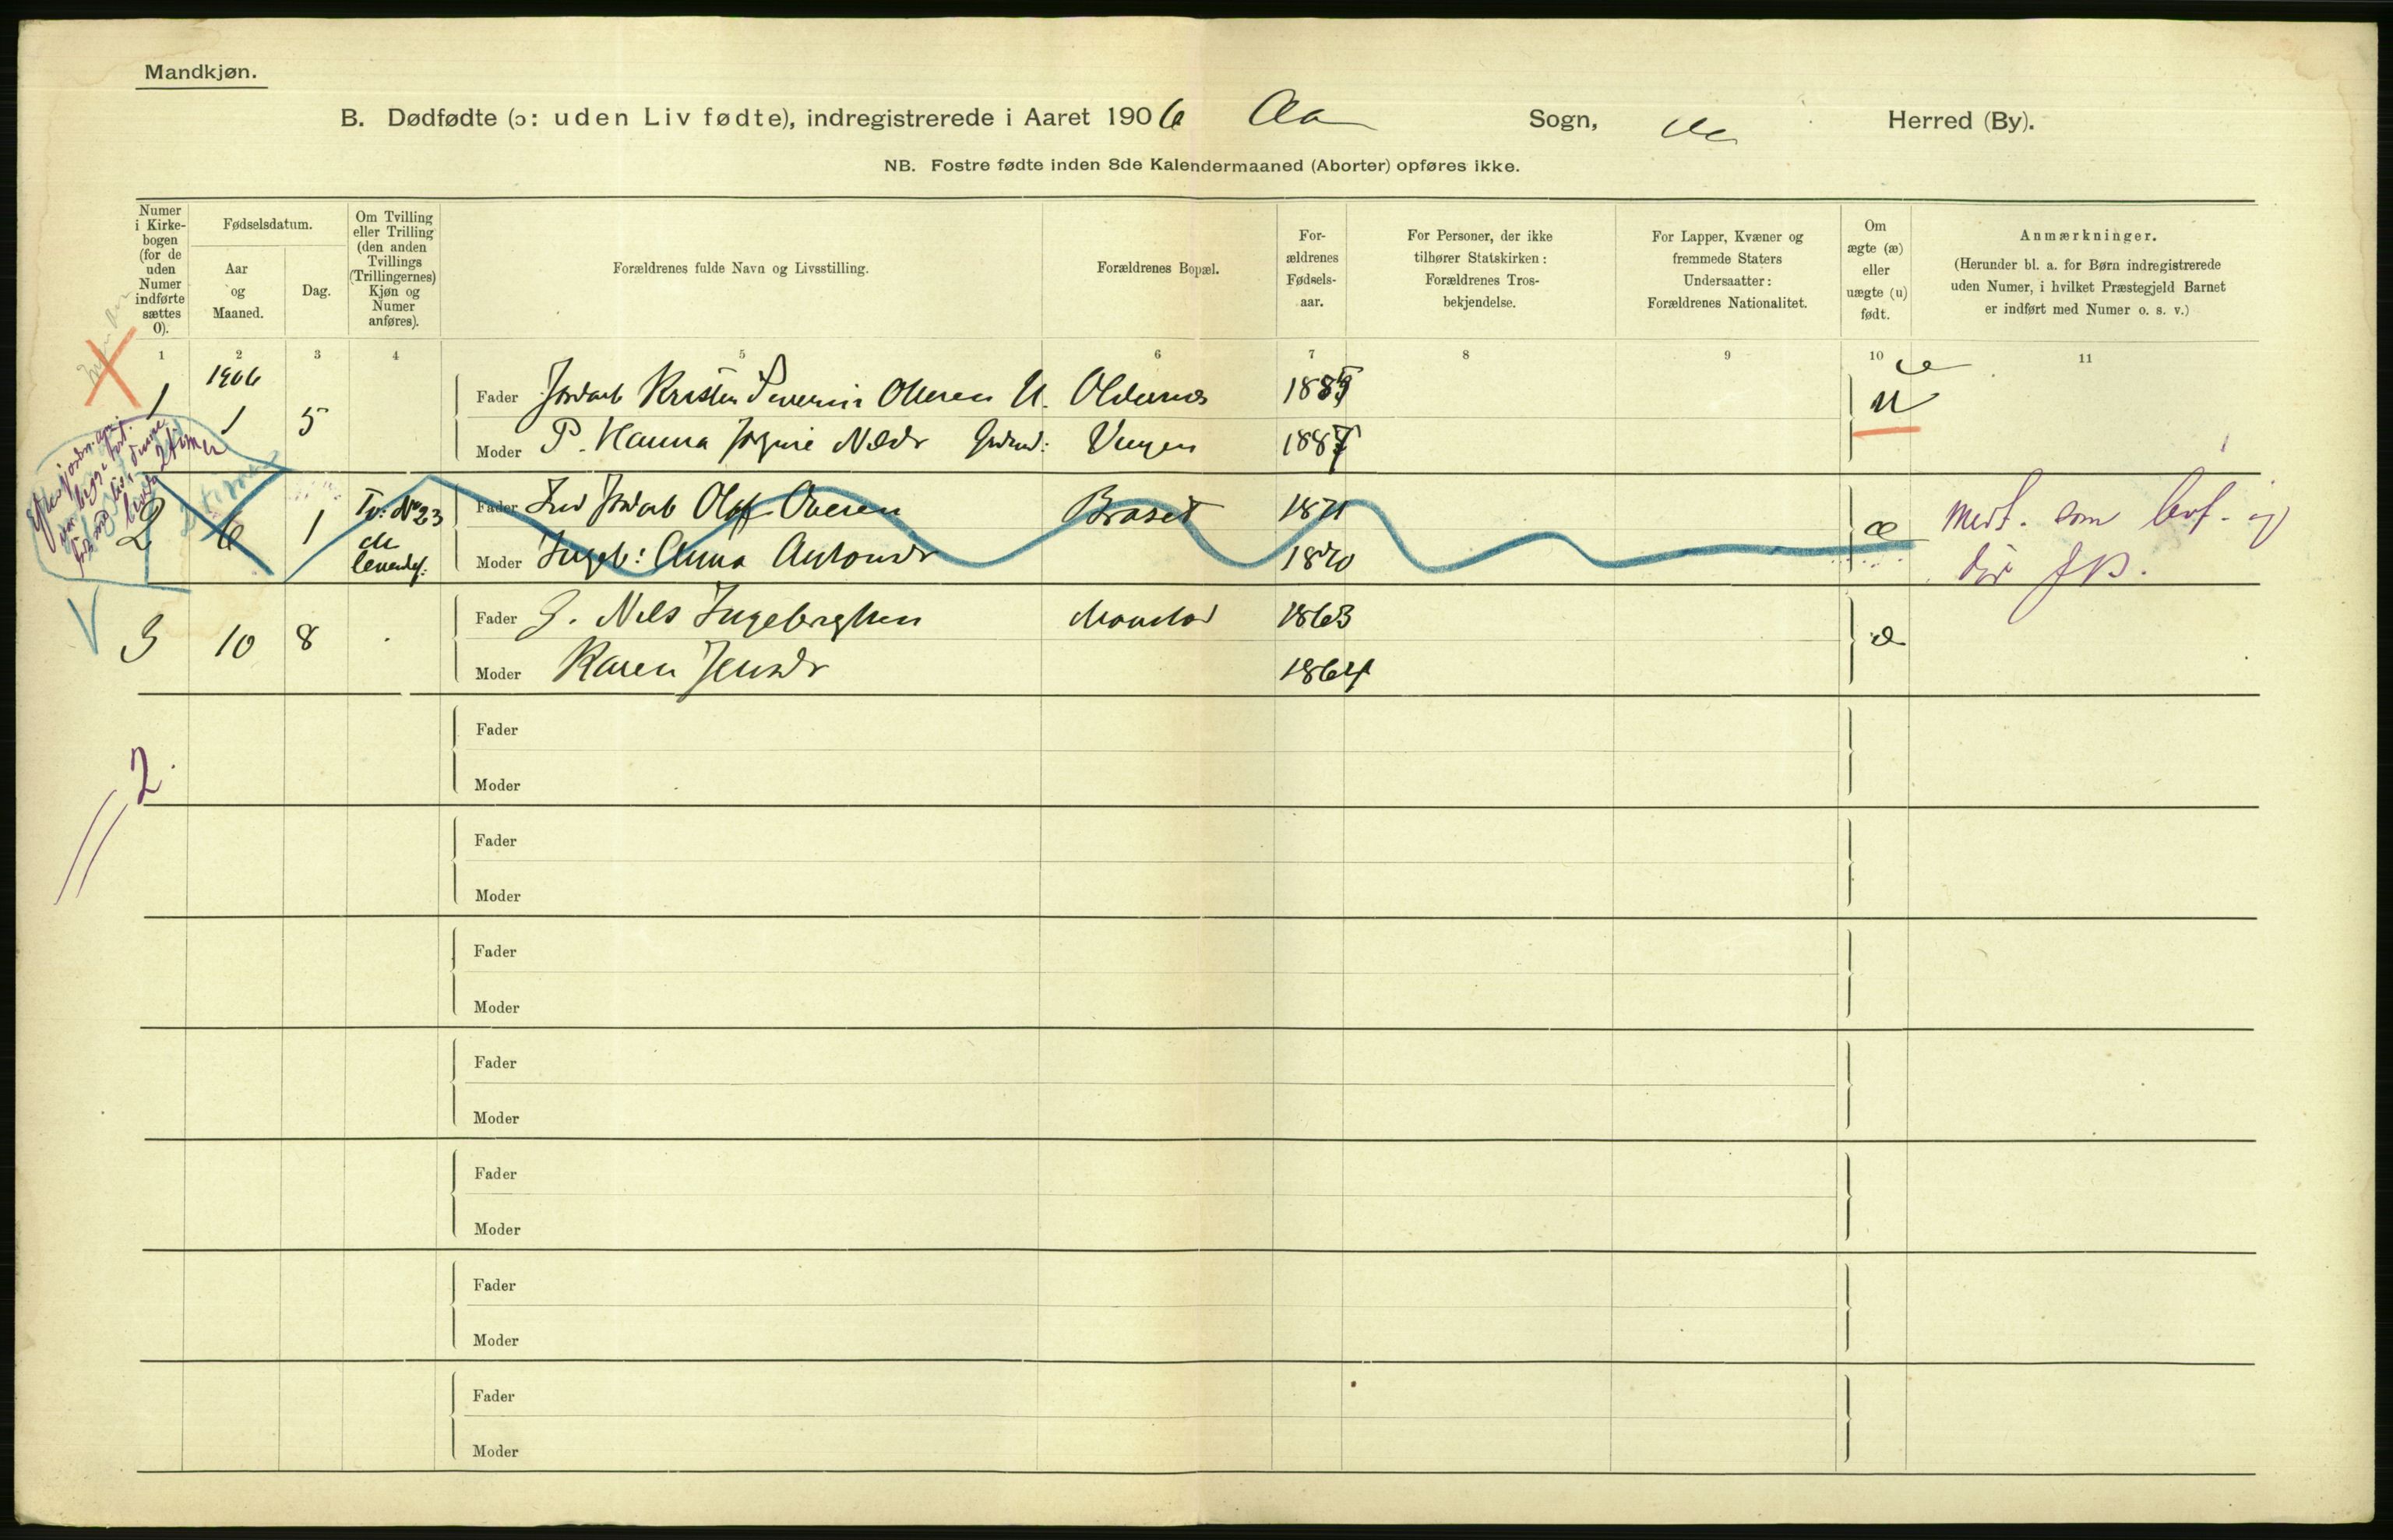 Mandkjøn.
B. Dødfødte (ɔ: uden Liv fødte), indregistrerede i Aaret 1906 Aa Sogn, Herred (By).
NB. Fostre fødte inden 8de Kalendermaaned (Aborter) opføres ikke.
Numer i Kirke-bogen (for de uden Numer indførte sættes 0).
Fødselsdatum.
Aar og Maaned.
Dag.
Om Tvilling eller Trilling (den anden Tvillings (Trillingernes) Kjøn og Numer anføres).
Forældrenes fulde Navn og Livsstilling.
Forældrenes Bopæl.
For-ældrenes Fødsels-aar.
For Personer, der ikke tilhører Statskirken: Forældrenes Tros-bekjendelse.
For Lapper, Kvæner og fremmede Staters Undersaatter: Forældrenes Nationalitet.
Om ægte (æ) eller uægte (u) født.
Anmærkninger.
(Herunder bl. a. for Børn indregistrerede uden Numer, i hvilket Præstegjeld Barnet er indført med Numer o. s. v.)
1 2 3 4 5 6 7 8 9 10 11
1906
1 1 5 Fader Jordarb Kristen Severin Olsen U. Oldernes u
Moder P. Hanna Nilsdr Vingen
2 6 1 Tv: No 23 levendef. Fader Ind Jordarb Olaf Braset 1871 æ
Moder Ingeb: Anna Antonsdr 1870
som levf. og
død
2 Timer
3 10 8 Fader G. Nels Ingebrigtsen 1863 æ
Moder Karen Jensdr 1864
2
Fader
Moder
Fader
Moder
Fader
Moder
Fader
Moder
Fader
Moder
Fader
Moder
Fader
Moder